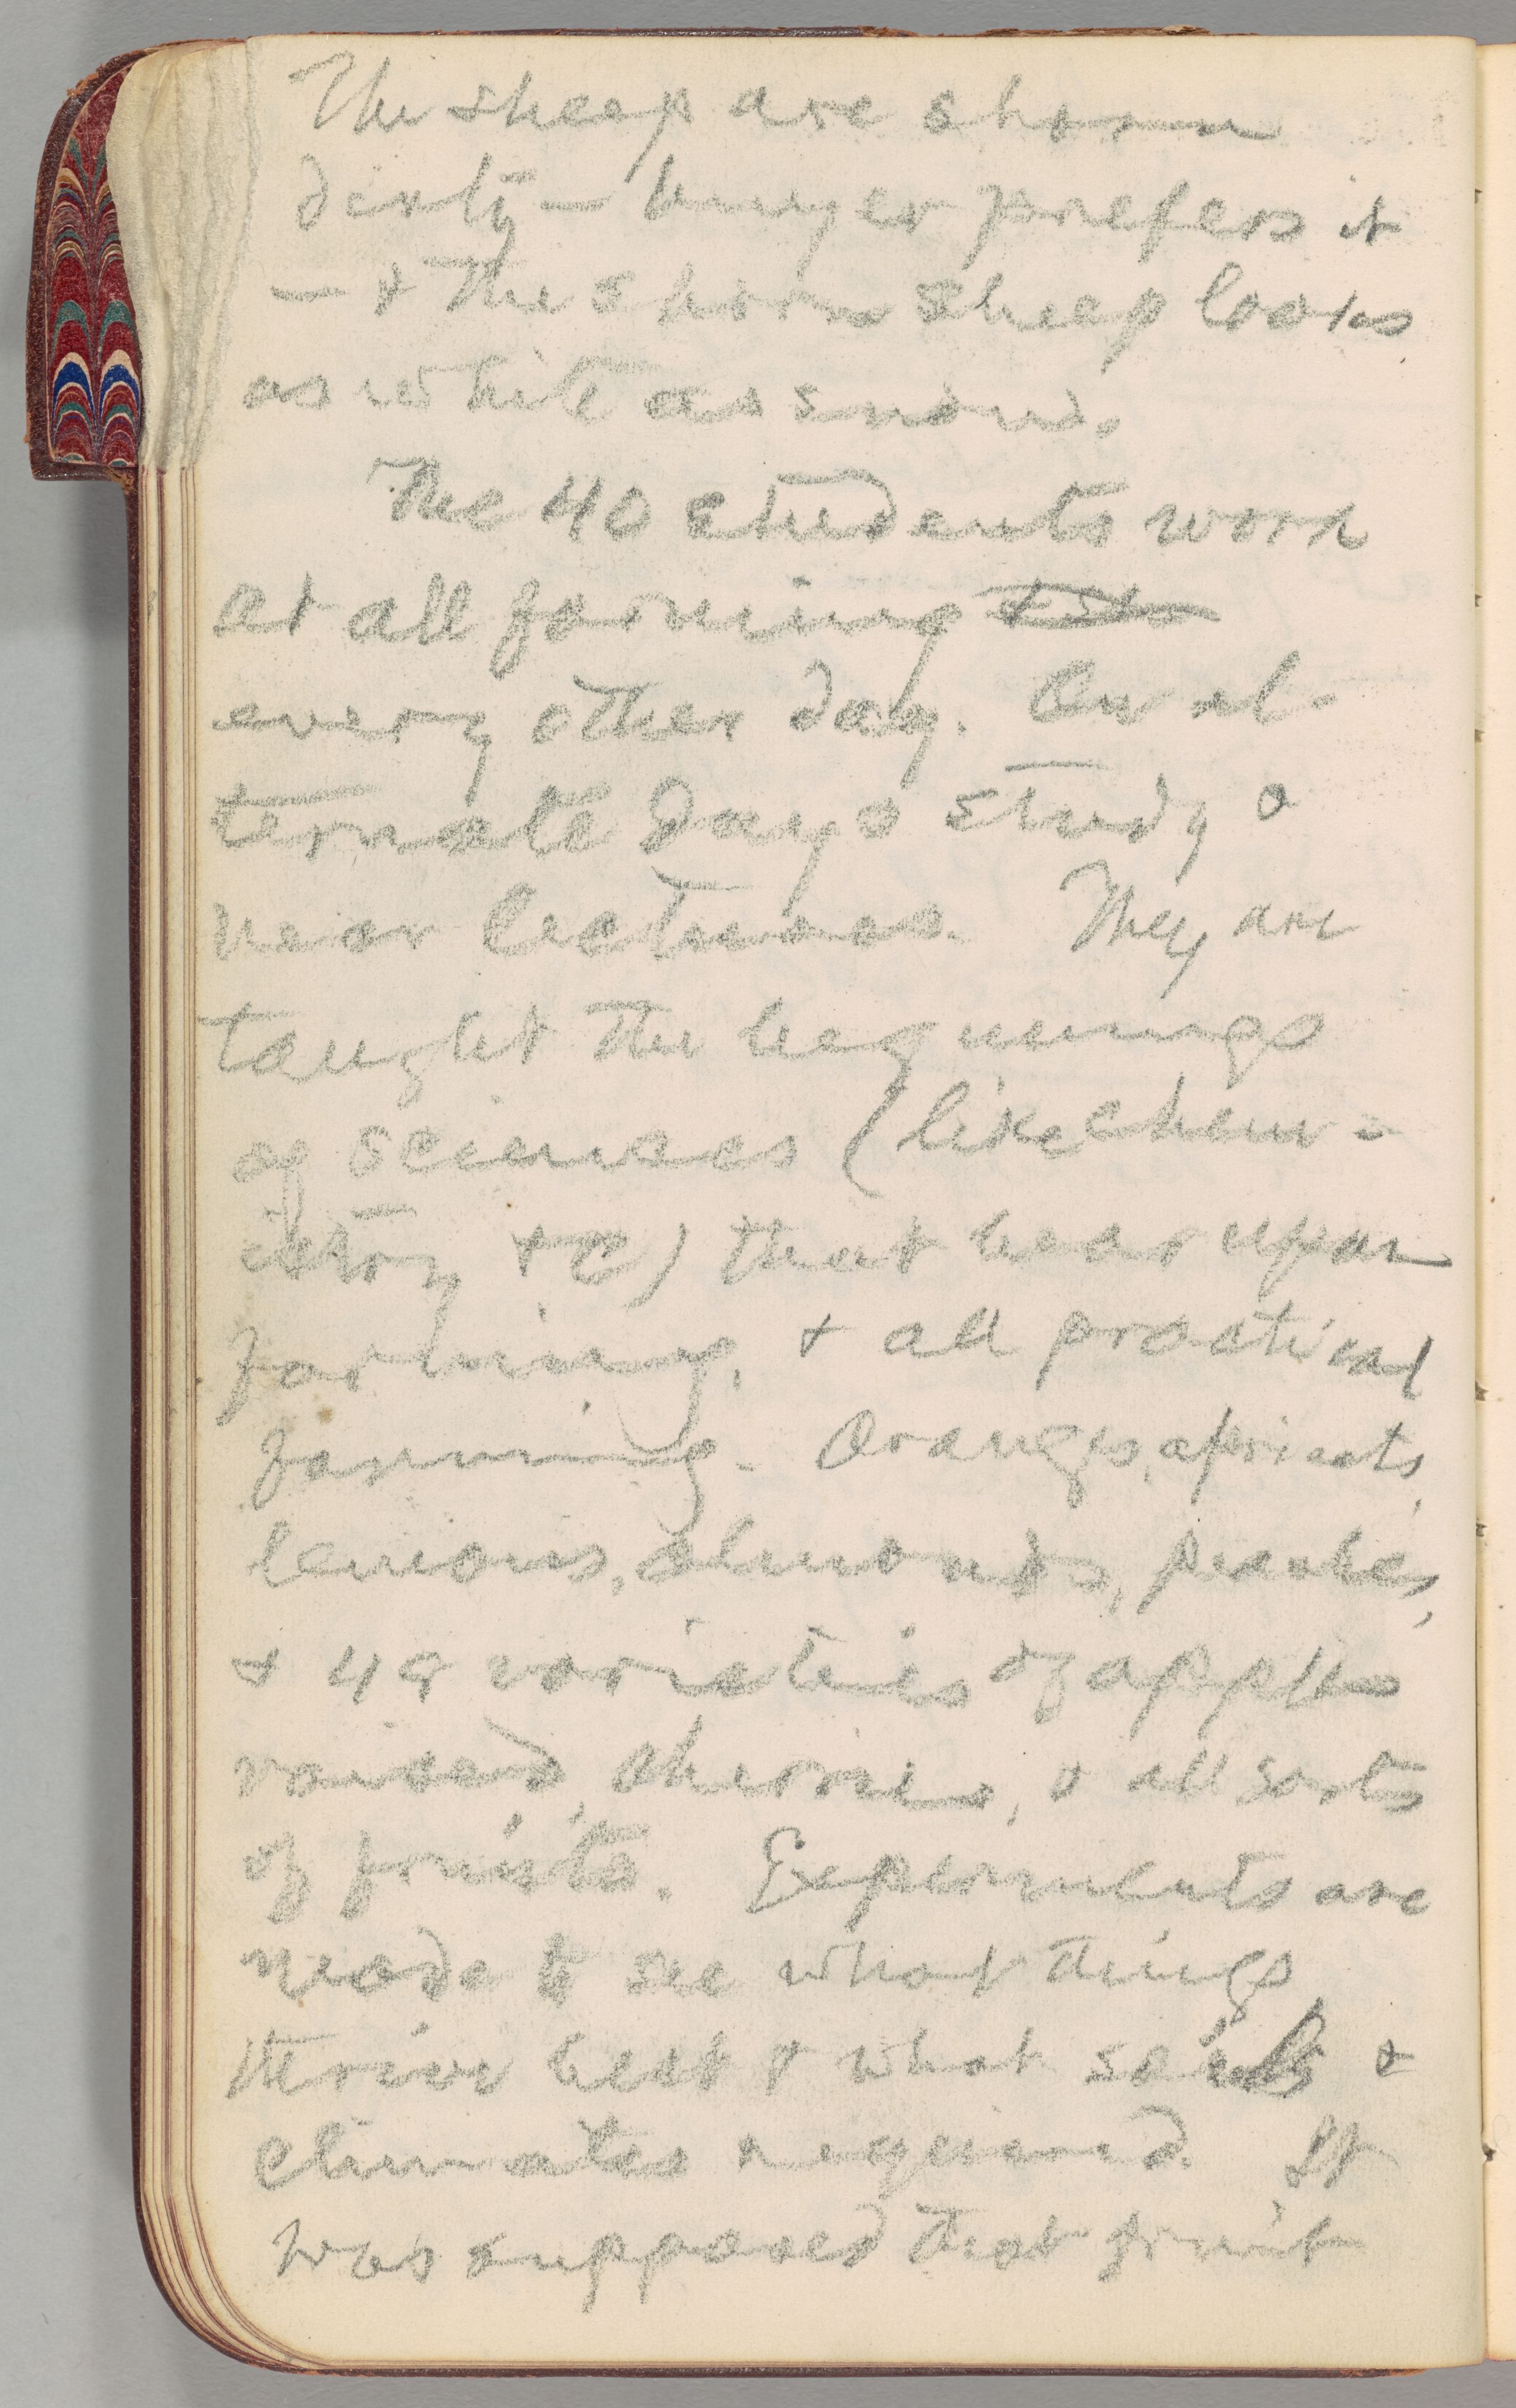 The sheep are shorn
dirty — buyer prefers it
— & the shorn sheep looks
as white as snow.
The 40 students work
at all farming
every other day. On al-
ternate days study &
hear lectures. They are
taught the beginnings
of sciences (like chem-
istry &c) that bear upon
farming, & all practical
farming. Oranges, apricots,
lemons, almonds, peaches,
& 48 varieties of apples
raised, cherries, & all sorts
of fruits. Experiments are
made to see what things
thrive best & what soils &
climates required. It
was supposed that fruit